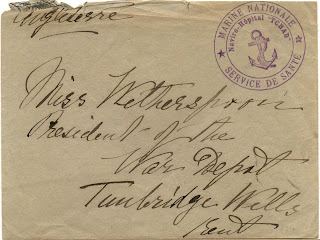 Angleterre
MARINE NATIONALE
Navire-Hôpital "TCHAD"
SERVICE DE SANTÉ
Miss Wetherspoon
President of the
War Depôt
Tunbridge Wells
Kent